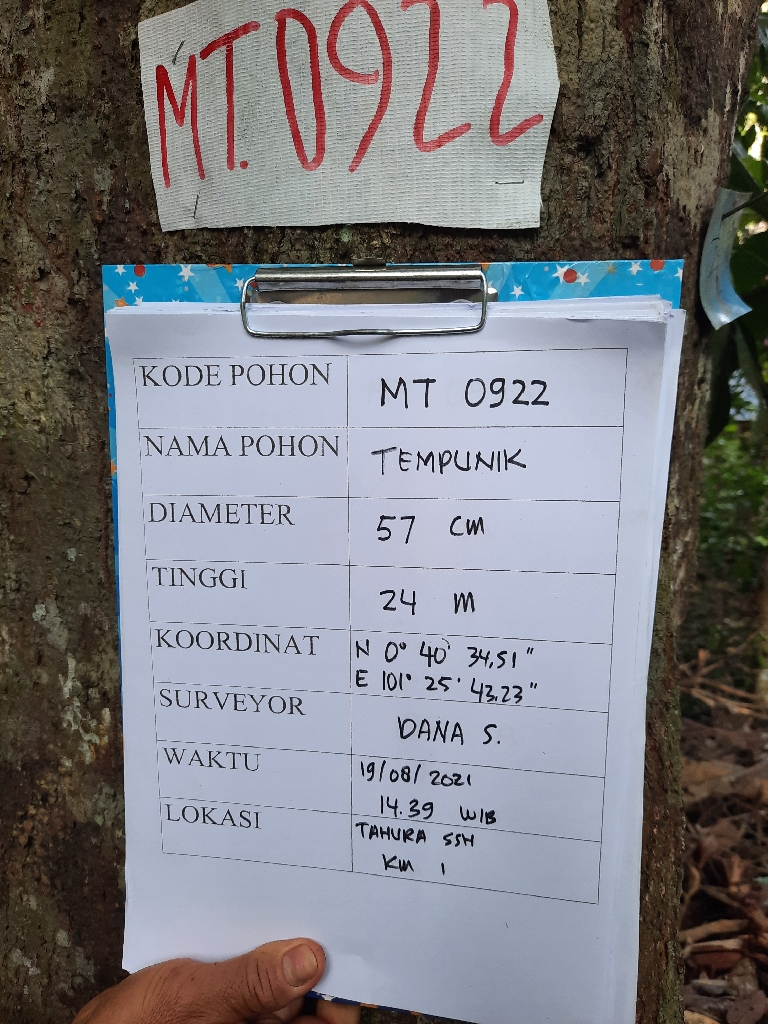 MT.0922
KODE POHON MT 0922
NAMA POHON TEMPUNIK
DIAMETER 57 cm
TINGGI 24 m
KOORDINAT N 0° 40' 34,51"
E 101° 25' 43.23"
SURVEYOR DANA S.
WAKTU 19/08/2021
14.39 WIB
LOKASI TAHURA SSH
KM 1